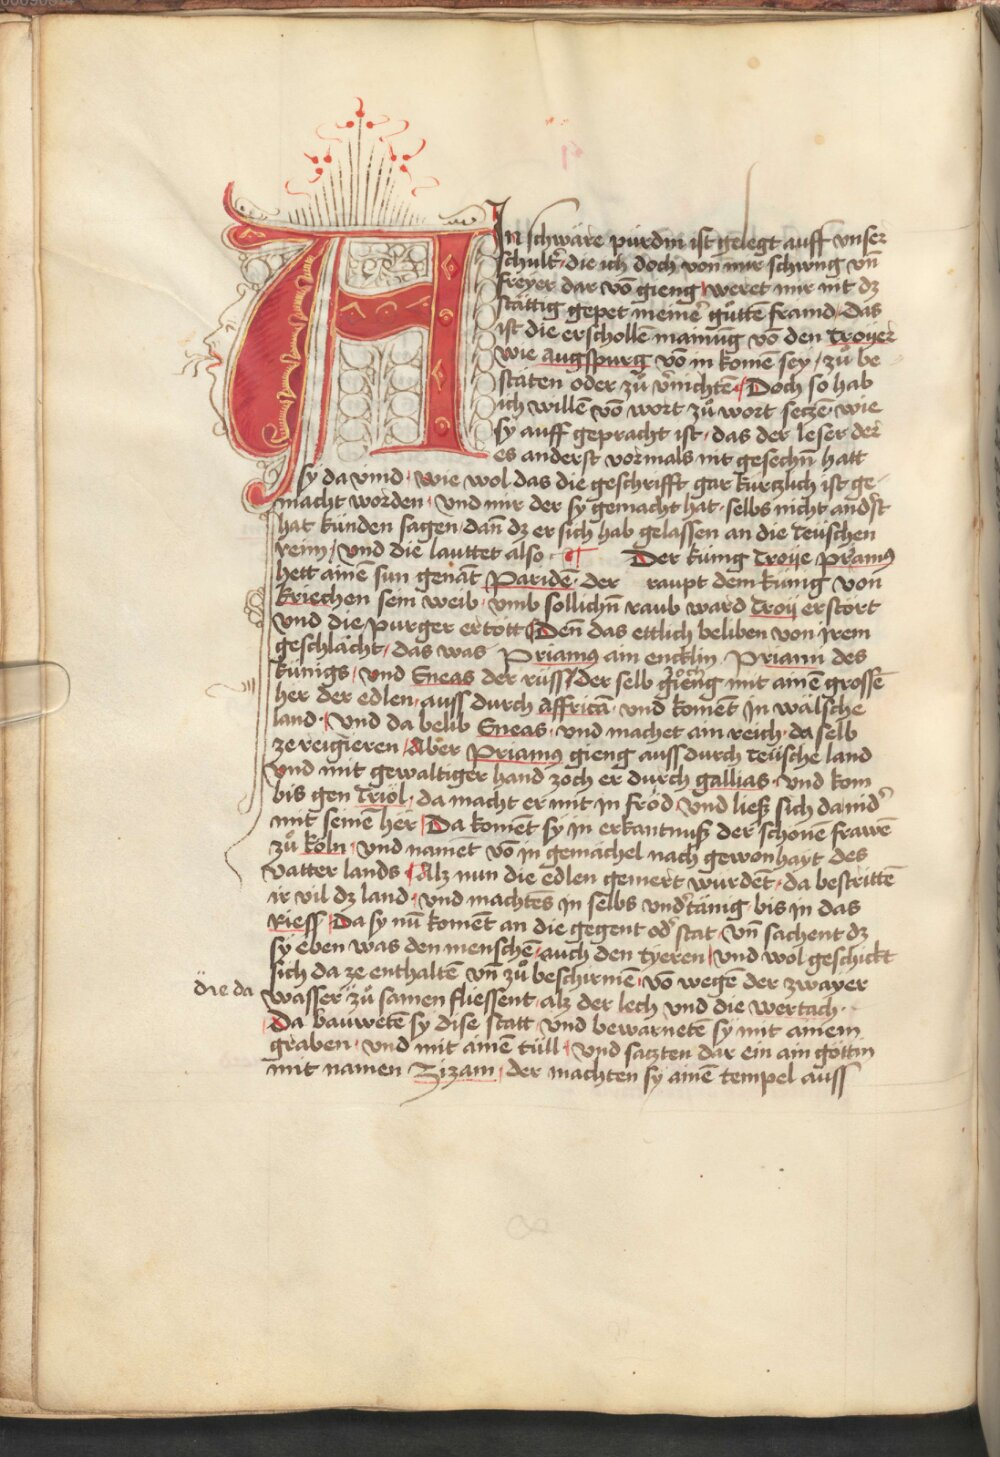 AIn schwäre pürdin ist gelegt auff vnser
schultˀ, die ich doch von mir schwng vn̄
freyer dar vō gieng, weret mir nit dz
stättig gepet meine gůttē fraind, das
ist die erschollē mainūg vō den Troyerˀ
wie augspurg vō in komē sey, zů be
stäten oder zů v̄nichtē Doch so hab
ich willē vō wort zů wort seczē, wie
sy auff gepracht ist, das der leser der
es anderst vormals nit gesechn̄ hatt
sy da vind, wie wol das die geschrifft gar kurczlich ist ge-
macht worden, vnd mir der sy gemacht hat, selbs nicht andˀst
hat künden sagen, dan̄ dz er sich hab gelassen an die teüschen
reim, vnd die lauttet also ¶ Der künig Troye pramus
hett ainē sun genāt Paridē, der raupt dem künig von
kriechen sein weib, vmb sollichn̄ raub ward Troij erstört
vnd die purger ertött Den̄ das ettlich beliben von jrem
geschlächt, das was Priamus ain encklin Priami des
künigs, vnd Eneas der rüss, der selb gieng mit ainē grossē
her der edlen, auss durch affricā, vnd komēt Jn wälsche
land, vnd da belib Eneas, vnd machet ain reich, da selb
ze reigieren, Aber Priamus gieng auss durch Teüsche land
vnd mit gewaltiger hand zoch er durch gallias, vnd kom
bis gen Triol, da macht er mit in fröd, vnd ließ sich da nidˀ
mit seinē her, Da komēt sy in erkantnuß der schöne frawē
zů köln, vnd namēt vō in gemächel nach gewonhayt des
vatter lands Alz nun die edlen gemert wurdēt, da bestrittē
ir vil dz land, vnd machtēs jn selbs vndˀtänig, bis in das
Riess, Da sy nū komēt an die gegent odˀ stat, vn̄ sachent dz
sy eben was den menschē, auch den tyeren, vnd wol geschickt
sich da ze enthaltē vn̄ zů beschirmē, vō wegē der zwayer
die da wasser zů samen fliessent, alz der lech vnd die wertach,
Da bauwetē sy dise statt, vnd bewarnetē sy mit ainem
graben, vnd mit ainē tüll, vnd saczten dar ein ain göttin
mit namen Zizam, der machten sy ainē tempel auss